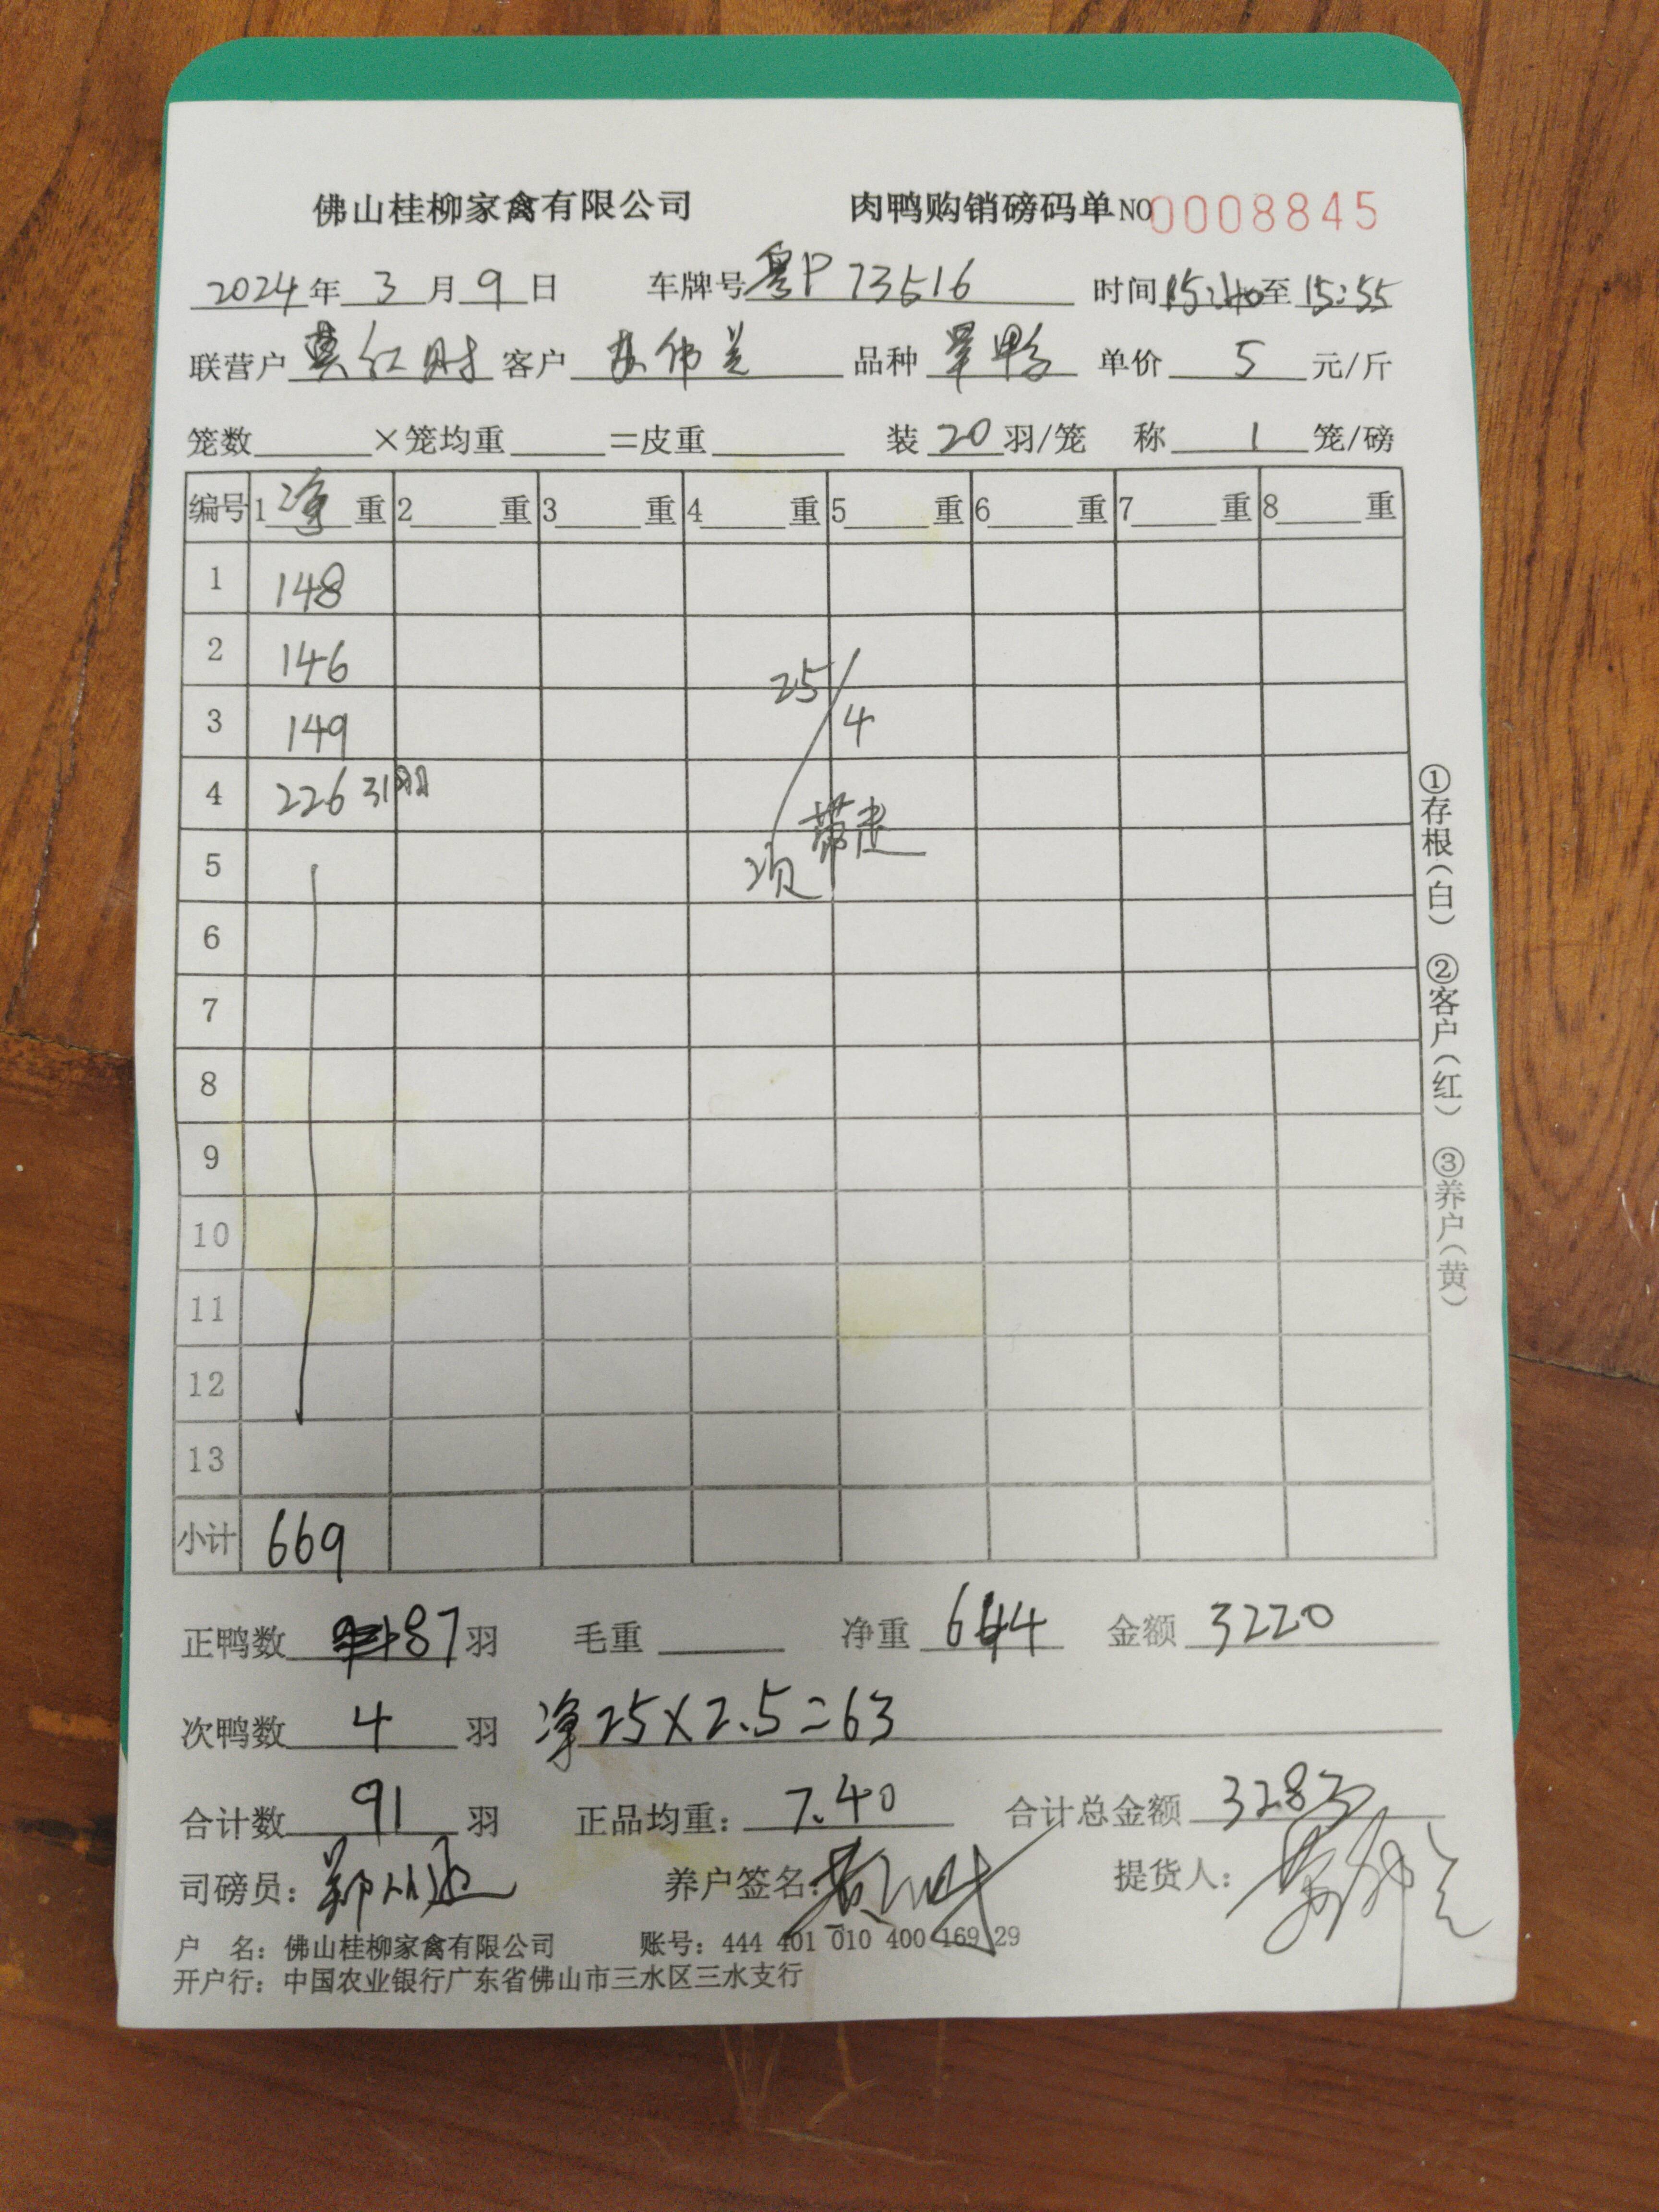 佛山桂柳家禽有限公司 肉鸭购销磅码单NO0008845
2024年3月9日 车牌号粤P73516 时间15:40至15:55
联营户 红 客户 伟兰 品种 鸭 单价 5 元/斤
笼数 ×笼均重 =皮重 装 20 羽/笼 称 1 笼/磅
编号 1 净 重 2 重 3 重 4 重 5 重 6 重 7 重 8 重
1 148
2 146
3 149
4 226 31羽
5
6
7
8
9
10
11
12
13
25/4
次 带走
小计 669
正鸭数 87 羽 毛重 净重 644 金额 3220
次鸭数 4 羽 净25×2.5=63
合计数 91 羽 正品均重: 7.40 合计总金额 3283
司磅员: 养户签名: 提货人:
户 名: 佛山桂柳家禽有限公司 账号: 444 401 010 400 169 29
开户行: 中国农业银行广东省佛山市三水区三水支行
①存根(白) ②客户(红) ③养户(黄)